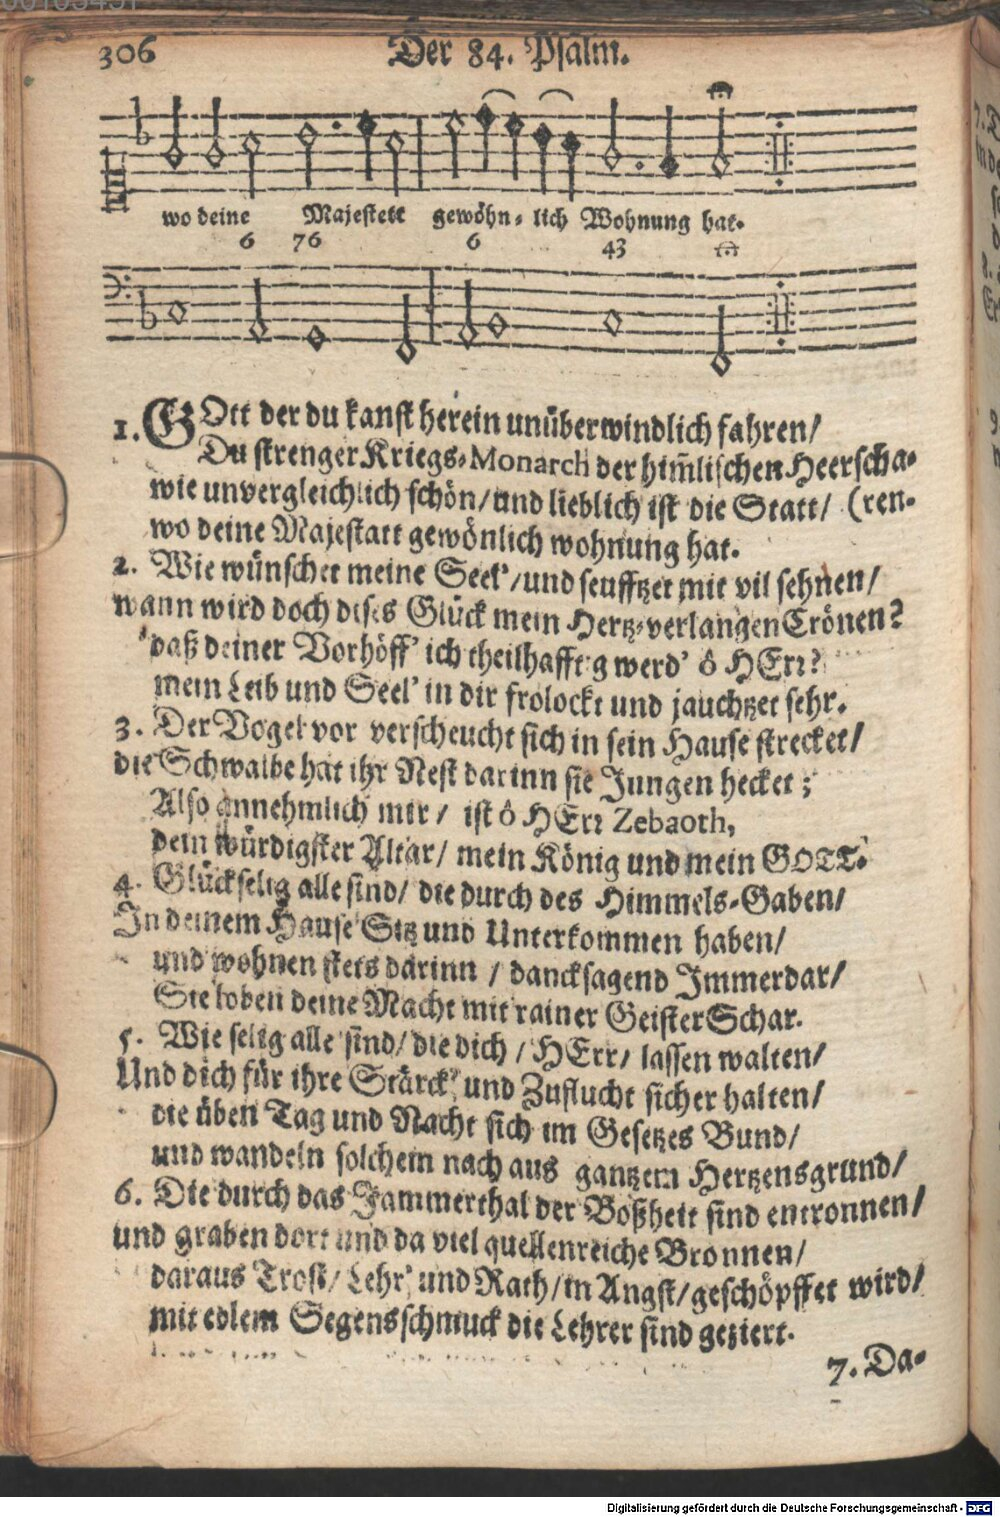 306
Der 84. Psalm.
wo deine Majestett gewöhn- lich Wohnung hat.
6 76 6 43
1. GOtt der du kanst herein unüberwindlich fahren/
Du strenger Kriegs-Monarch der him̃lischen Heerscha-
wie unvergleichlich schön/und lieblich ist die Statt/ (ren-
wo deine Majestatt gewönlich wohnung hat.
2. Wie wünschet meine Seel'/und seufftzet mit vil sehnen/
wann wird doch dises Glück mein Hertz-verlangen Crönen?
daß deiner Vorhöff' ich theilhafftg werd' ô HErr?
mein Leib und Seel' in dir frolockt und jauchtzet sehr.
3. Der Vogel vor verscheucht sich in sein Hause strecket/
die Schwalbe hat ihr Nest darinn sie Jungen hecket;
Also annehmlich mir/ ist ô HErr Zebaoth,
dein würdigster Altar/ mein König und mein GOTT.
4. Glückselig alle sind/ die durch des Himmels-Gaben/
In deinem Hause Sitz und Unterkommen haben/
und wohnen stets darinn / dancksagend Immerdar/
Sie loben deine Macht mit rainer Geister Schar.
5. Wie selig alle sind/ die dich / HErr/ lassen walten/
Und dich für ihre Stärck' und Zuflucht sicher halten/
die üben Tag und Nacht sich im Gesetzes Bund/
und wandeln solchem nach aus gantzem Hertzensgrund/
6. Die durch das Jammerthal der Boßheit sind entronnen/
und graben dort und da viel quellenreiche Bronnen/
daraus Trost/ Lehr' und Rath/in Angst/geschöpffet wird/
mit edlem Segensschmuck die Lehrer sind geziert.
7. Da-
Digitalisierung gefördert durch die Deutsche Forschungsgemeinschaft - DFG